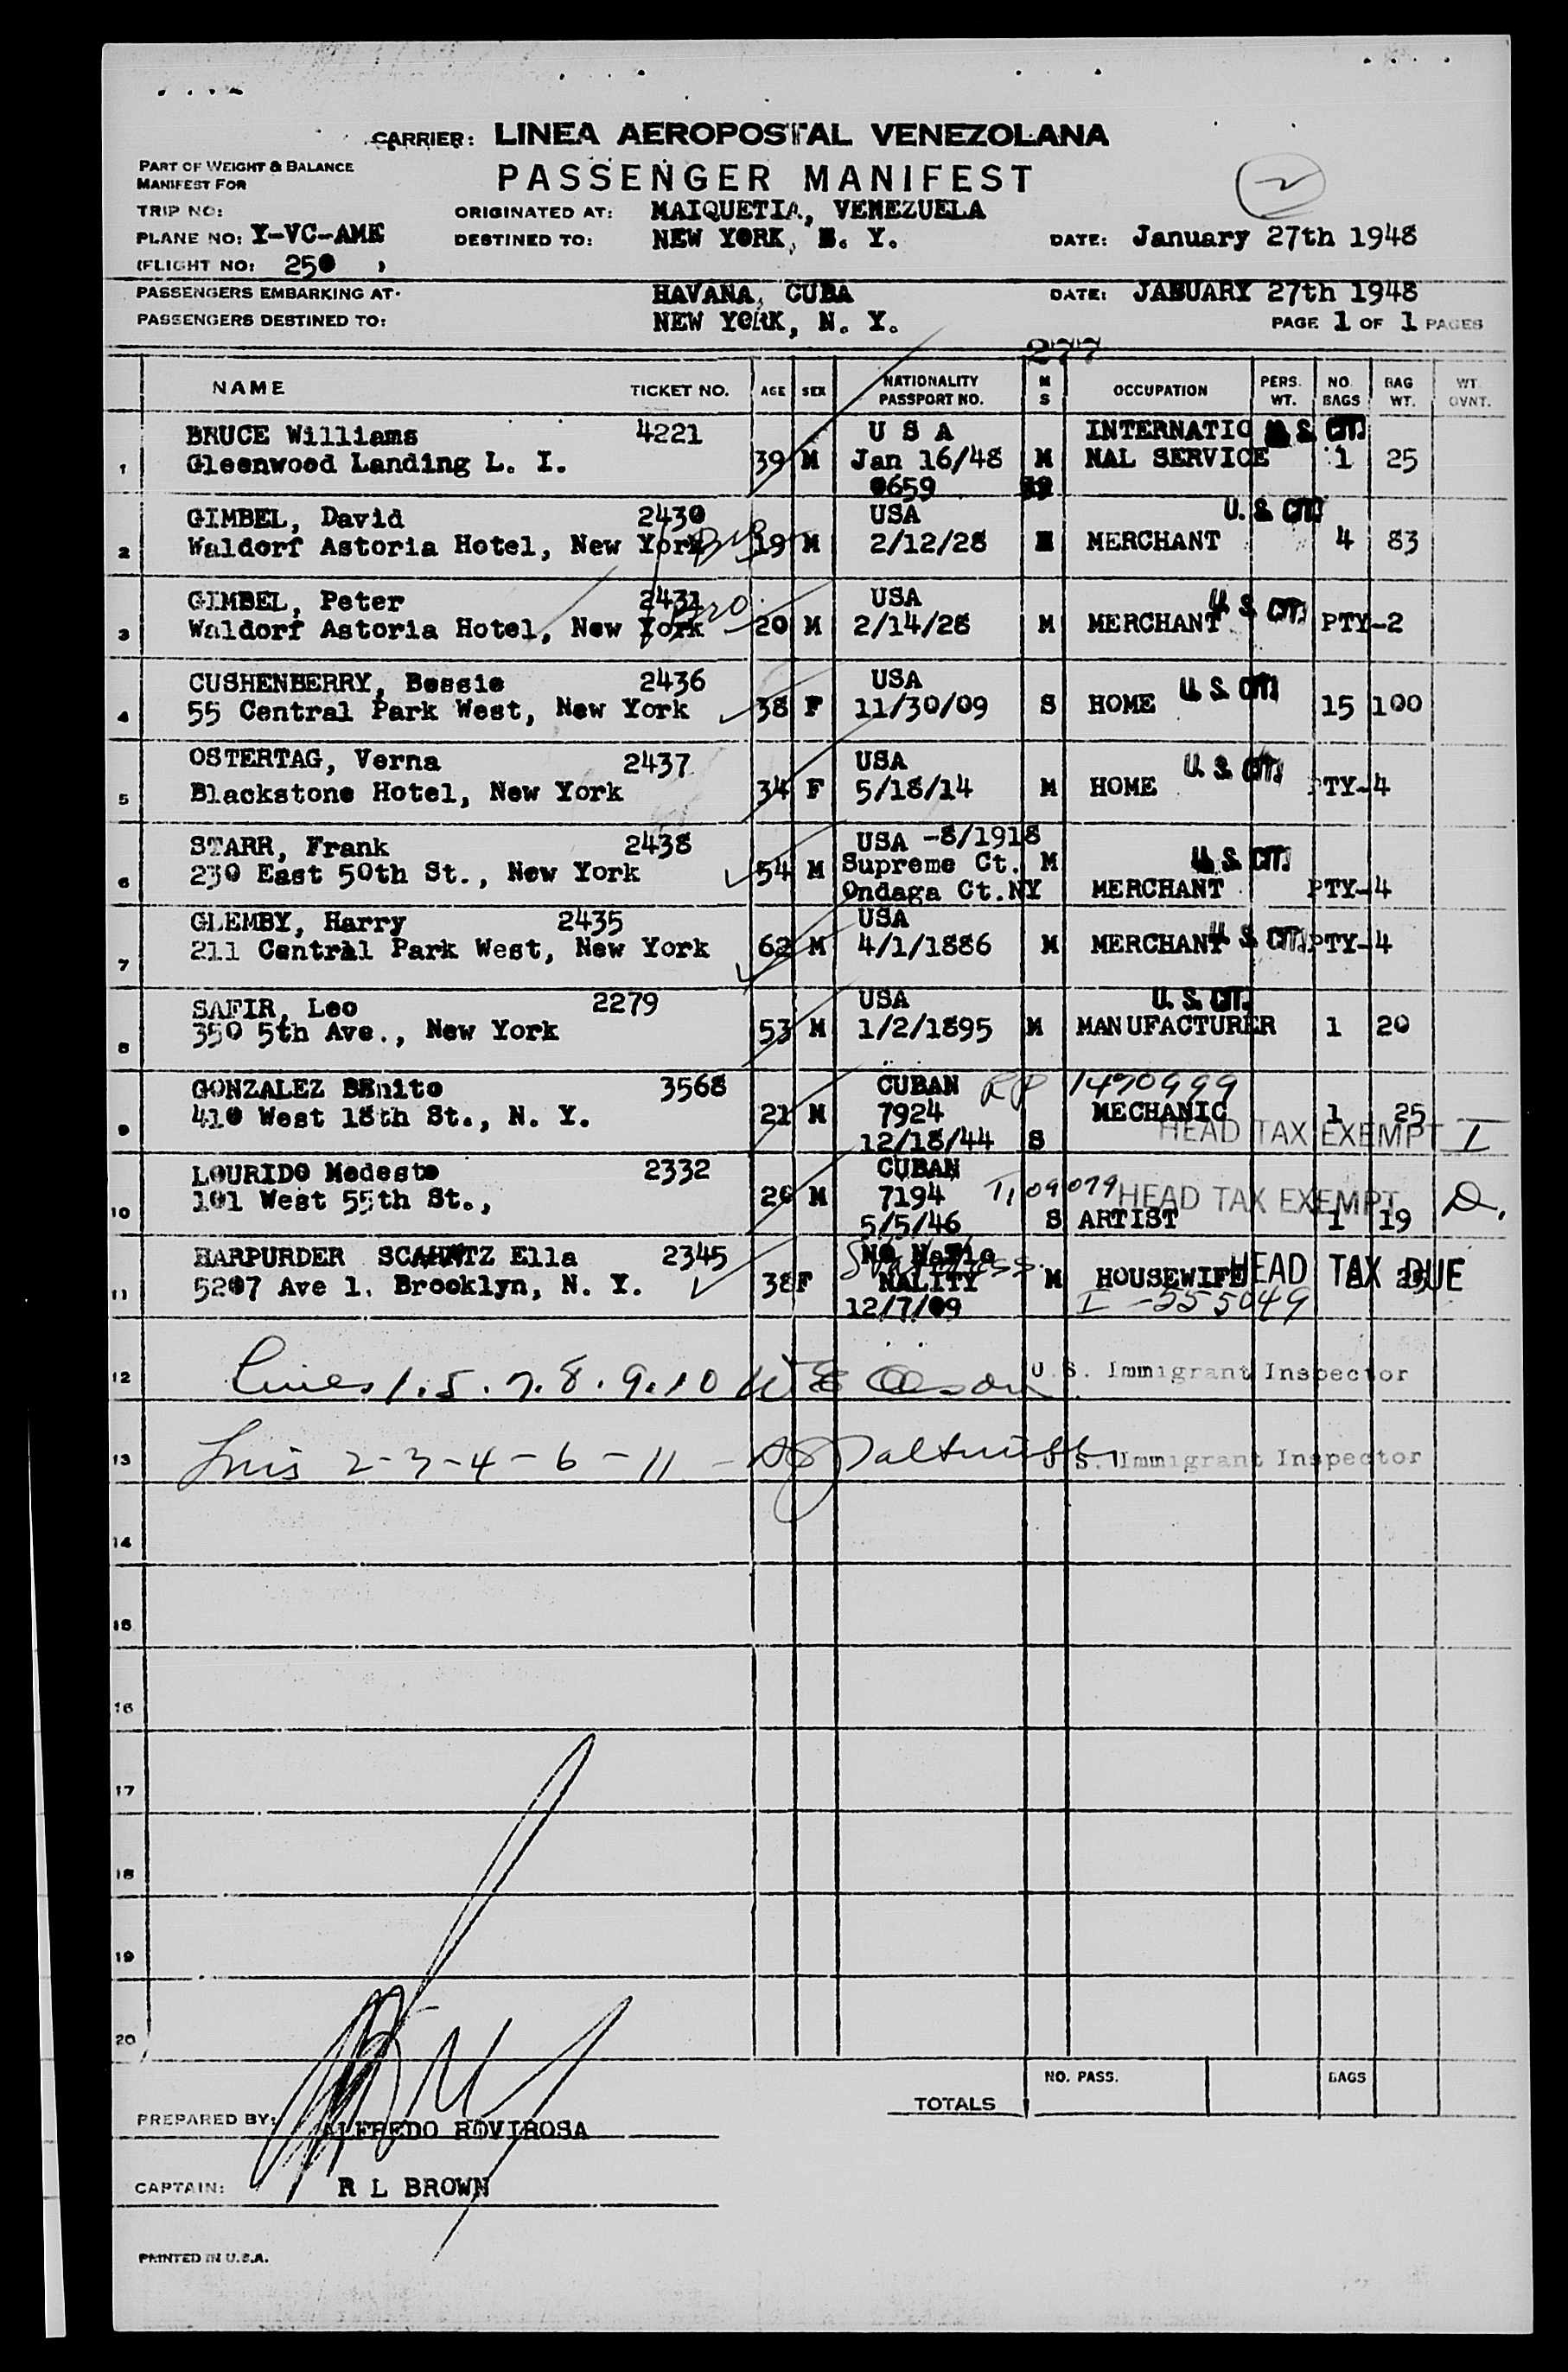 CARRIER: LINEA AEROPOSTAL VENEZOLANA
PART OF WEIGHT & BALANCE
MANIFEST FOR
PASSENGER MANIFEST
2
TRIP NO:
ORIGINATED AT: MAIQUETIA, VENEZUELA
PLANE NO: Y-VC-AME
DESTINED TO: NEW YORK, N. Y.
DATE: January 27th 1948
(FLIGHT NO: 250 )
PASSENGERS EMBARKING AT: HAVANA, CUBA
DATE: JANUARY 27th 1948
PASSENGERS DESTINED TO: NEW YORK, N. Y.
PAGE 1 OF 1 PAGES
277
NAME TICKET NO. AGE SEX NATIONALITY PASSPORT NO. M S OCCUPATION PERS. WT. NO. BAGS BAG WT. WT. OVNT.
BRUCE Williams 4221 U S A INTERNATIO U. S. CIT.
1 Gleenwood Landing L. I. 39 M Jan 16/48 M NAL SERVICE 1 25
0659
GIMBEL, David 2430 USA U. S. CIT.
2 Waldorf Astoria Hotel, New York 19 M 2/12/28 MERCHANT 4 83
GIMBEL, Peter 2431 USA U. S. CIT.
3 Waldorf Astoria Hotel, New York 20 M 2/14/28 M MERCHANT PTY-2
CUSHENBERRY, Bessie 2436 USA U. S. CIT.
4 55 Central Park West, New York 38 F 11/30/09 S HOME 15 100
OSTERTAG, Verna 2437 USA U. S. CIT.
5 Blackstone Hotel, New York 34 F 5/18/14 M HOME PTY-4
STARR, Frank 2438 USA -8/1918
6 230 East 50th St., New York 54 M Supreme Ct. M U. S. CIT.
Ondaga Ct.NY MERCHANT PTY-4
GLEMBY, Harry 2435 USA
7 211 Central Park West, New York 62 M 4/1/1886 M MERCHANT U. S. CIT. PTY-4
SAFIR, Leo 2279 USA U. S. CIT.
8 350 5th Ave., New York 53 M 1/2/1895 M MANUFACTURER 1 20
GONZALEZ BEnito 3568 CUBAN RP 1490999
9 410 West 18th St., N. Y. 21 M 7924 MECHANIC 1 25
12/18/44 S HEAD TAX EXEMPT I
LOURIDO Modesto 2332 CUBAN
10 101 West 55th St., 26 M 7194 HEAD TAX EXEMPT D.
5/5/46 S ARTIST 1 19
HARPURDER Ella 2345 NO Natio
11 5207 Ave 1. Brooklyn, N. Y. 38 F NALITY M HOUSEWIFE HEAD TAX DUE
12/7/09 I -555049
12 Lines 1. 5. 7. 8. 9. 10 U.S. Immigrant Inspector
13 Lines 2-3-4-6-11 - U.S. Immigrant Inspector
14
15
16
17
18
19
20
TOTALS NO. PASS. BAGS
PREPARED BY: ALFREDO ROVIROSA
CAPTAIN: R L BROWN
PRINTED IN U.S.A.